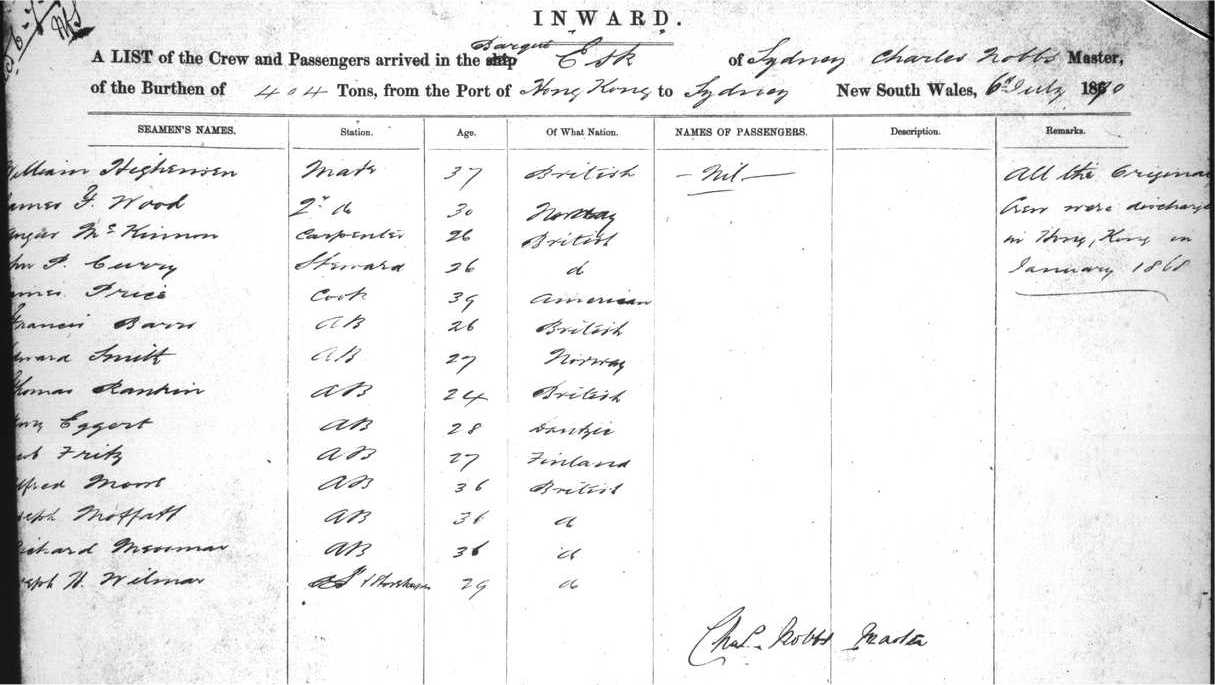 INWARD.
A LIST of the Crew and Passengers arrived in the ship Barque Esk of Sydney Charles Nobbs Master,
of the Burthen of 404 Tons, from the Port of Hong Kong to Sydney New South Wales, 6th July 1870
SEAMEN'S NAMES. Station. Age. Of What Nation. NAMES OF PASSENGERS. Description. Remarks.
William Mate 37 British - Nil - All the Original
James F. Wood 2nd do 30 Norway Crew were discharge
Angus McKinnon Carpenter 26 British in Hong Kong in
P. Curry Steward 26 d January 1868
James Price Cook 39 American
Francis AB 26 British
Edward Smith AB 27 Norway
Thomas Rankin AB 24 British
Eggert AB 28 Dantzic
Fritz AB 27 Finland
Alfred Moore AB 36 British
Joseph Moffatt AB 36 d
Richard AB 36 d
Joseph H. Wilmar 29 d
Chas. Nobbs Master